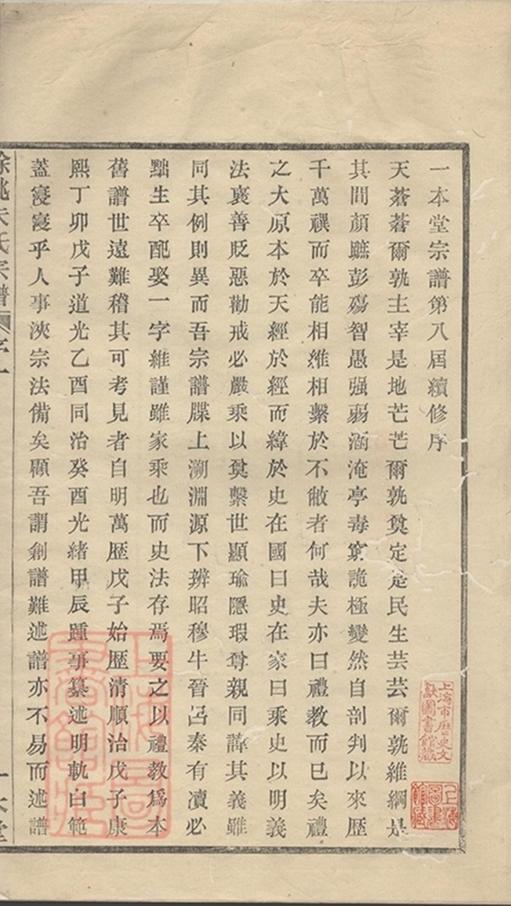 一本堂宗譜第八屆續修序
天蒼蒼爾孰主宰是地芒芒爾孰奠定是民生芸芸爾孰維綱是
其間顏蹠彭殤智愚强弱涵淹亭毒窮詭極變然自剖判以來歷
千萬禩而卒能相維相繫於不敝者何哉夫亦曰禮教而已矣禮
之大原本於天經於經而緯於史在國曰史在家曰乘史以明義
法褒善貶惡勸戒必嚴乘以奠繫世顯瑜隱瑕尊親同諱其義雖
同其例則異而吾宗譜牒上溯淵源下辨昭穆牛晉呂秦有瀆必
黜生卒配娶一字維謹雖家乘也而史法存焉要之以禮教爲本
舊譜世遠難稽其可考見者自明萬歷戊子始歷清順治戊子康
熙丁卯戊子道光乙酉同治癸酉光緒甲辰踵事纂述明軌白範
蓋寖寖乎人事浹宗法備矣顧吾謂創譜難述譜亦不易而述譜
上海市歷史文
獻圖書館藏